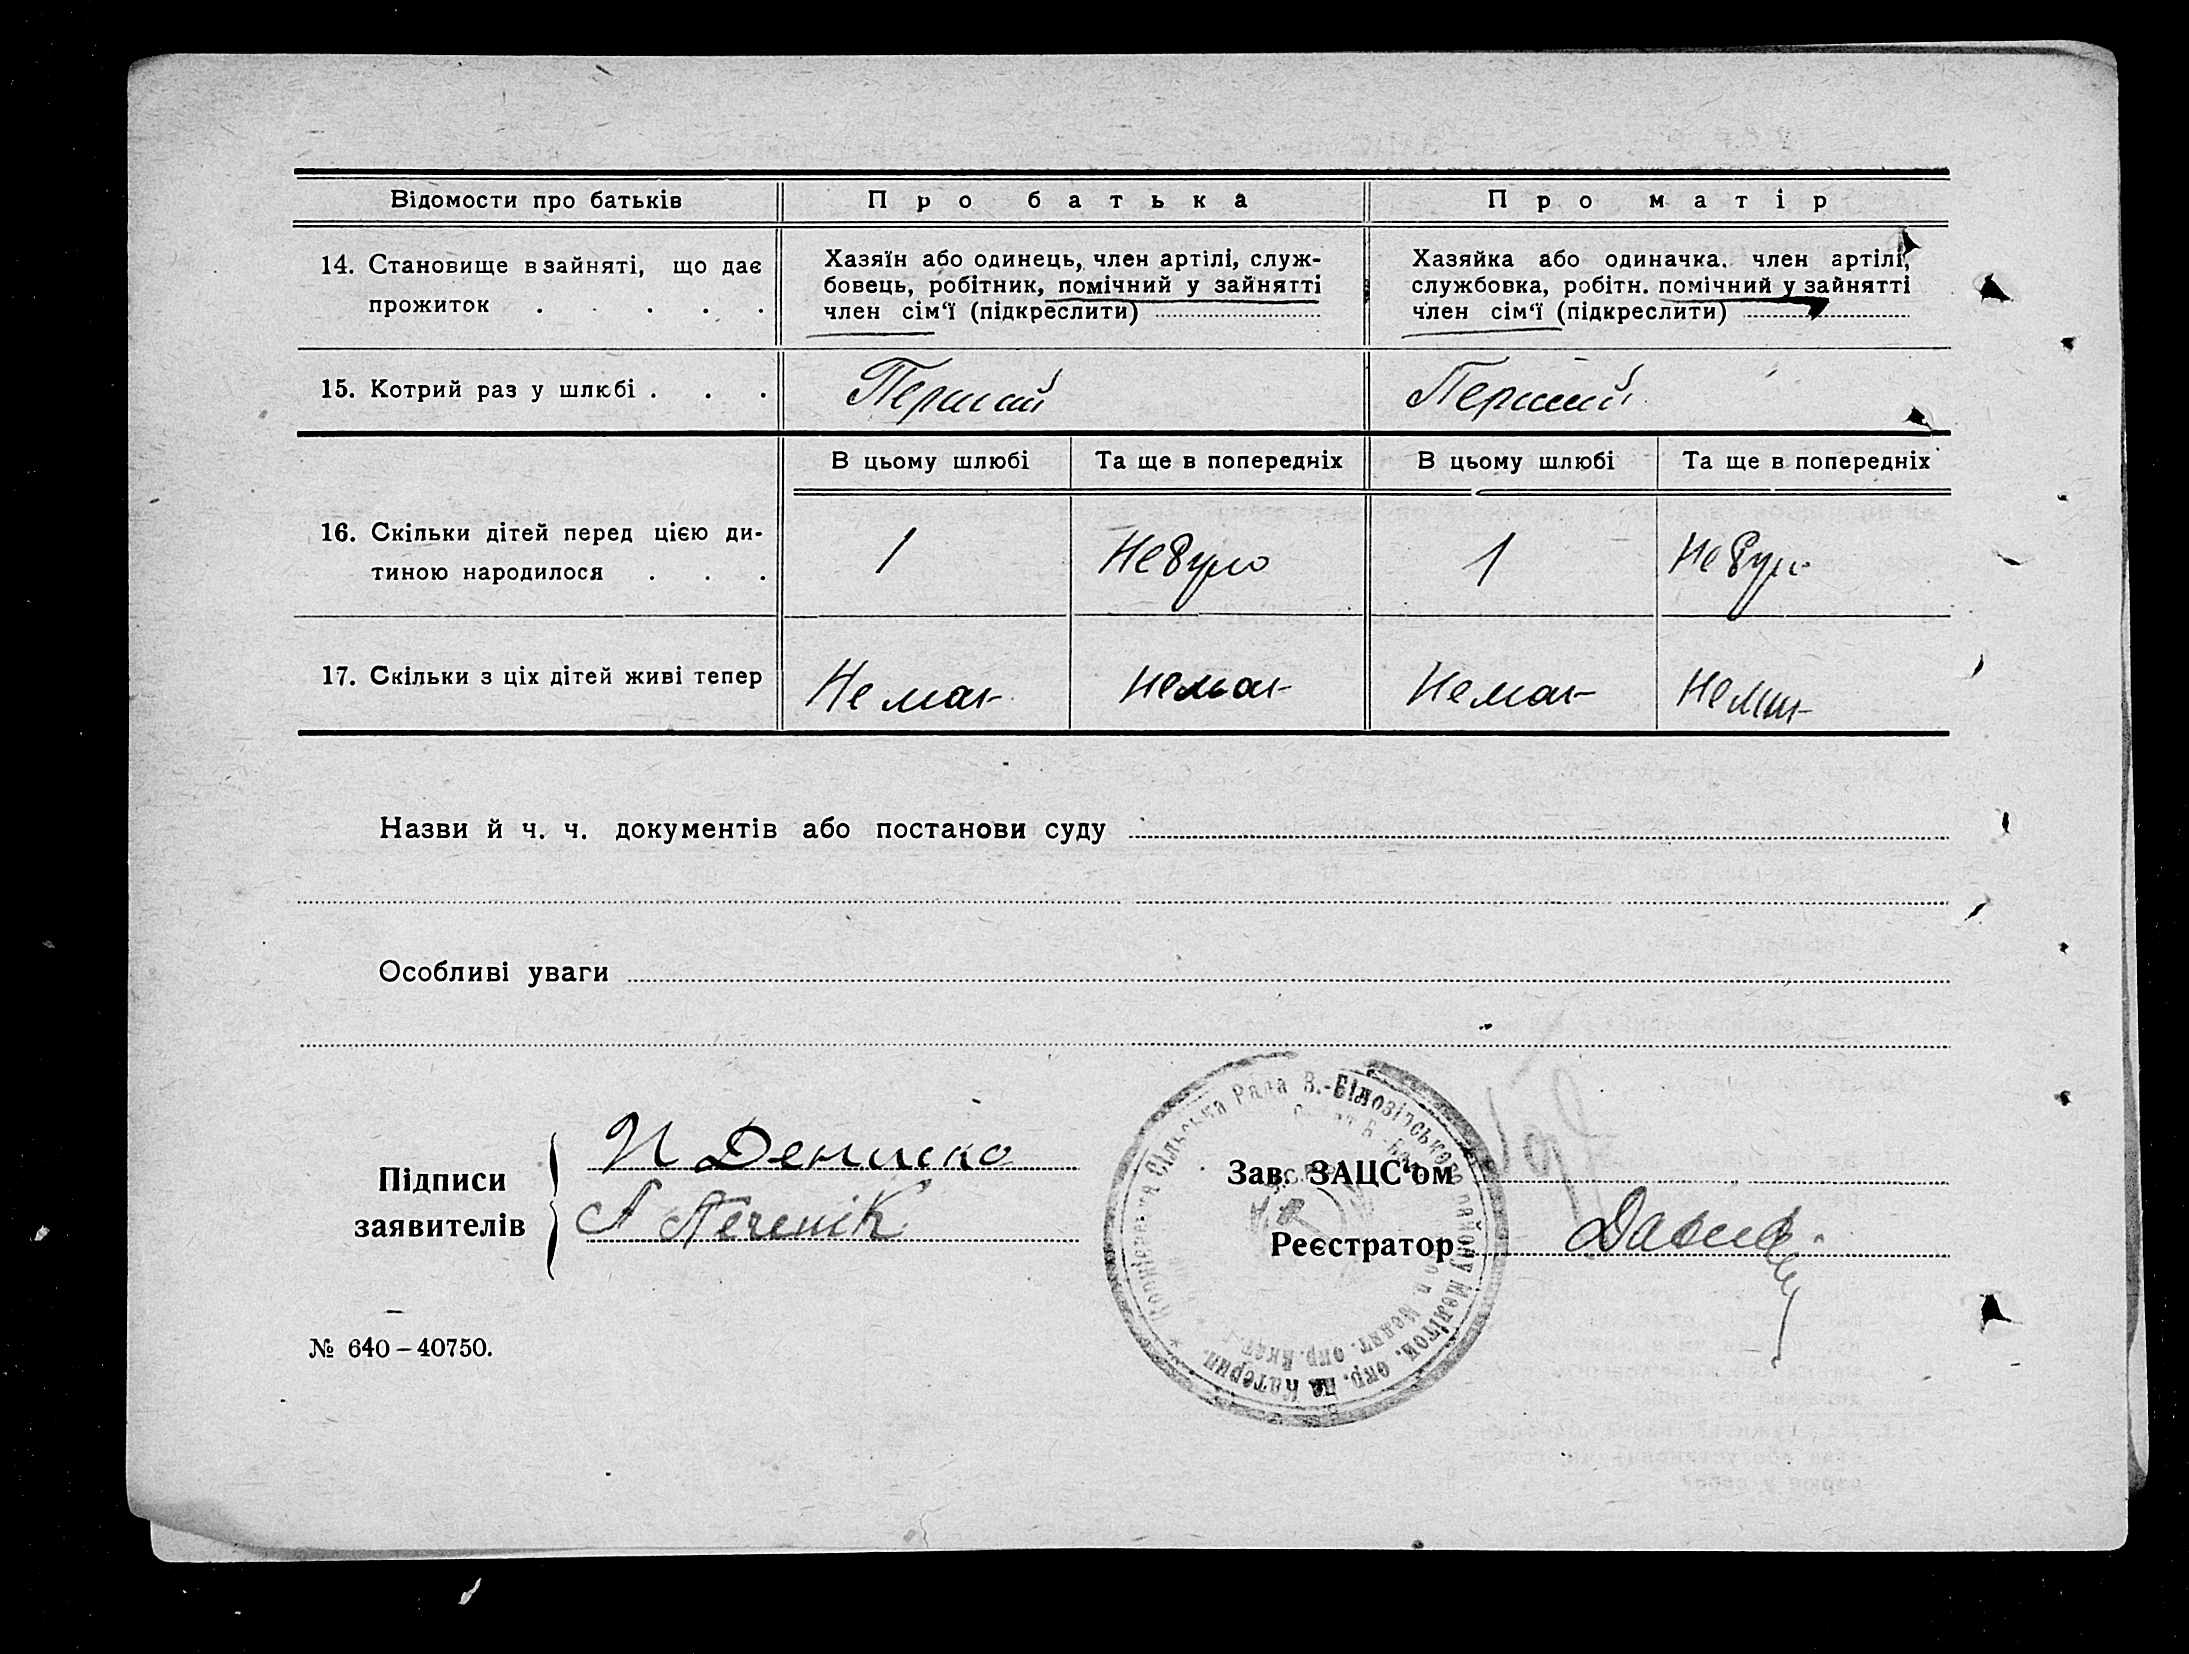 Відомости про батьків
Про батька
Про матір
14. Становище в зайняті, що дає
прожиток . . . . .
Хазяїн або одинець, член артілі, служ-
бовець, робітник, помічний у зайнятті
член сім‘ї (підкреслити)
Хазяйка або одиначка. член артілі,
службовка, робітн. помічний у зайнятті
член сім‘ї (підкреслити)
15. Котрий раз у шлюбі . . .
Перший
Перший
В цьому шлюбі
Та ще в попередніх
В цьому шлюбі
Та ще в попередніх
16. Скільки дітей перед цією ди-
тиною народилося . . .
1
Небуло
1
Небуло
17. Скільки з ціх дітей живі тепер
Немає
Немає
Немає
Немає
Назви й ч. ч. документів або постанови суду
Особливі уваги
Підписи
заявителів
И Дениско
А Печенік
Зав. ЗАЦС‘ом
Реєстратор
Сільська Рада В.-Білозірського району Мелітоп. окр. на Катерин.
№ 640 – 40750.